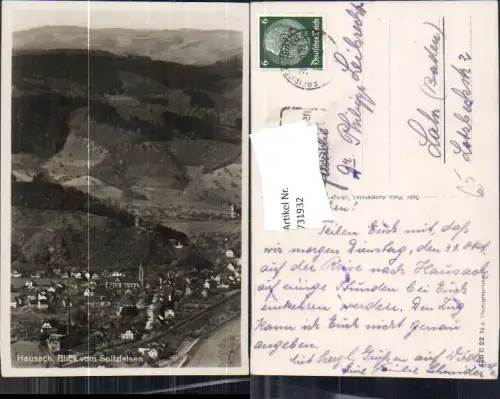 Hausach, Blick vom Spitzfelsen
6 Deutsches Reich 6
Familie
Gr. Philipp Leibrecht
Lahr (Baden)
Lotzbeckstr. 2
65
Artikel Nr.
731932
Gebr. Metz, Kunstanstalten, Tübingen
Teilen Euch mit, daß
wir morgen Dienstag, den 30. Okt.
auf der Reise nach Hausach
auf einige Stunden bei Euch
einkehren werden. Den Zug
kann ich Euch nicht genau
angeben.
Mit herzl. Grüßen auf Wieder
Eure Familie
B 22 N